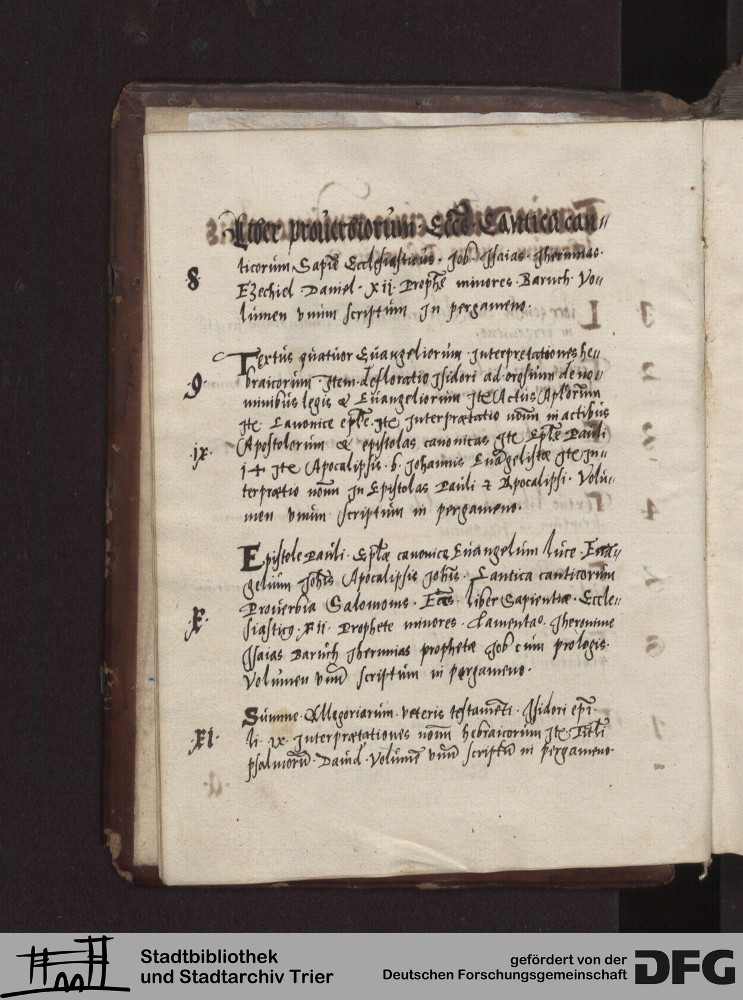 Liber proverbiorum Eccs Cantica can„
8. ticorum Sapie Ecclesiasticus. Job. Isaias. Iheremias.
Ezechiel. Daniel. xii. Prophe minores. Baruch. Vo„
lumen vnum scriptum In pergameno.
Textus quatuor Euangeliorum. Interpretationes he„
9. braicorum. Item. defloratio Isidori ad orosium de no„
minibus legis & Euangeliorum Ite Actus Aplorum
Ite. Canonice eple. Ite Interpraetatio nom in actibus
ix. Apostolorum & epistolas canonicas Ite Eple Pauli
14 Ite Apocalipsis. b. Johannis Euangelistae Ite In„
terpraetio nom In Epistolas Pauli & Apocalipsi. Volu„
men vnum scriptum in pergameno.
Epistole Pauli. Eplae canonicae Euangelium luce. Euan„
gelium Johis Apocalipsis Johis. Cantica canticorum
x. Prouerbia Salomonis. Eccs. liber Sapientiae. Eccle„
siastico. xii. Prophete minores. Lamentao. Iheremiae
Isaias Baruch Iheremias prophetae Job cum prologis.
Volumen vnu scriptum in pergameno.
Summe Allegoriarum. veteris testamenti. Isidori epi.
xi. li. ix. Interpraetationes nom hebraicorum Ite. Titli
psalmoru. Dauid. Volume vnu scriptu in pergameno.
Stadtbibliothek
und Stadtarchiv Trier
gefördert von der
Deutschen Forschungsgemeinschaft
DFG